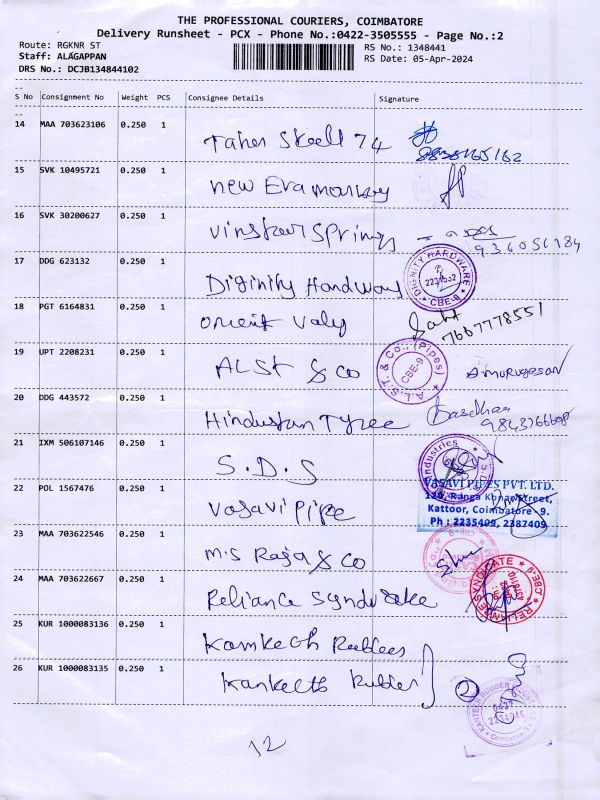 THE PROFESSIONAL COURIERS, COIMBATORE
Delivery Runsheet - PCX - Phone No.:0422-3505555 - Page No.:2
Route: RGKNR ST
RS No.: 1348441
Staff: ALAGAPPAN
RS Date: 05-Apr-2024
DRS No.: DCJB134844102
S No Consignment No Weight PCS Consignee Details Signature
14 MAA 703623106 0.250 1 Taher Skell 74
15 SVK 10495721 0.250 1 New Era
16 SVK 30200627 0.250 1 Vinstar Springs 936056184
17 DDG 623132 0.250 1 Diginity Hardway
DIGNITY HARDWARE
CBE-9
18 PGT 6164831 0.250 1 Orient Valy
7667778551
19 UPT 2208231 0.250 1 ALST & Co A Murugesan
A.L.S.T. & Co., (Pipes)
CBE-9
20 DDG 443572 0.250 1 Hindustan Tyree
21 IXM 506107146 0.250 1 S.D.S
Industries
22 POL 1567476 0.250 1 Vasavi Pipe
VASAVI PIPES PVT. LTD.
Ranga Konar Street,
Kattoor, Coimbatore - 9.
Ph : 2235409, 2387409
23 MAA 703622546 0.250 1 M.S Raja & Co
24 MAA 703622667 0.250 1 Reliance Syndicate
RELIANCE SYNDICATE
CBE-9
25 KUR 1000083136 0.250 1
26 KUR 1000083135 0.250 1 Rubber
2
0422
12